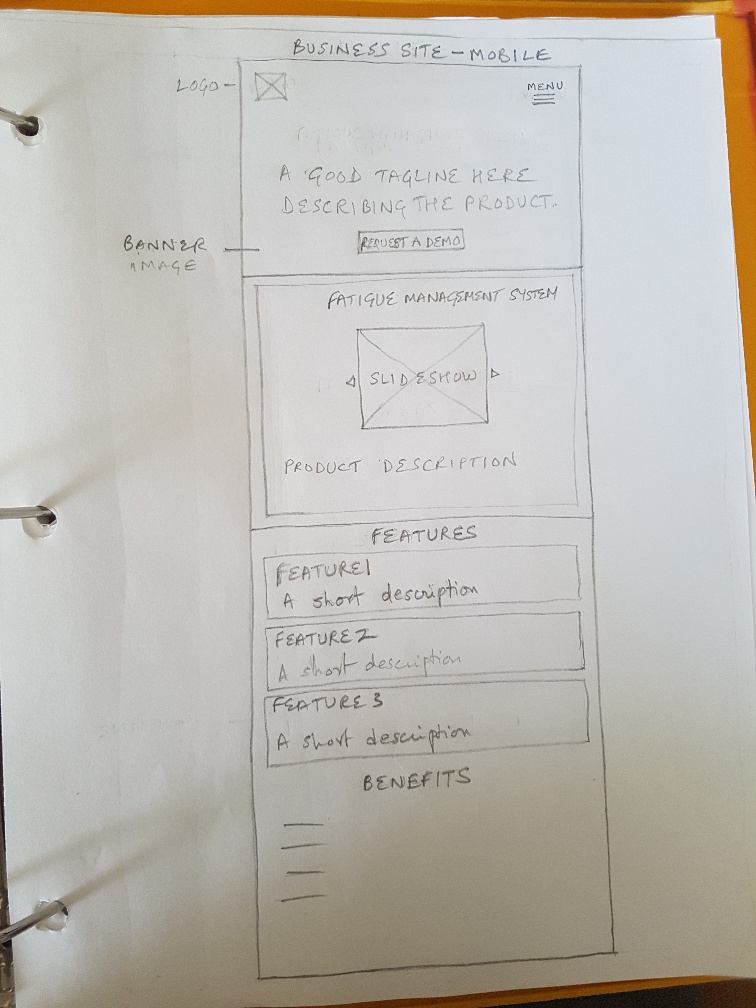 BUSINESS SITE - MOBILE
LOGO -
MENU
A GOOD TAGLINE HERE
DESCRIBING THE PRODUCT.
BANNER
IMAGE
REQUEST A DEMO
FATIGUE MANAGEMENT SYSTEM
SLIDESHOW
PRODUCT DESCRIPTION
FEATURES
FEATURE 1
A short description
FEATURE 2
A short description
FEATURE 3
A short description
BENEFITS